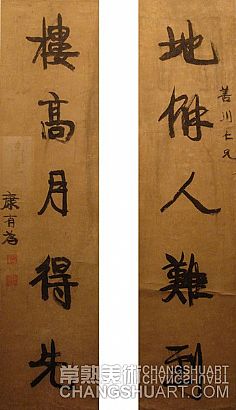 地僻人難到
善川仁兄
樓高月得先
康有為
常熟美術CHANGSHUART
CHANGSHUART.COM